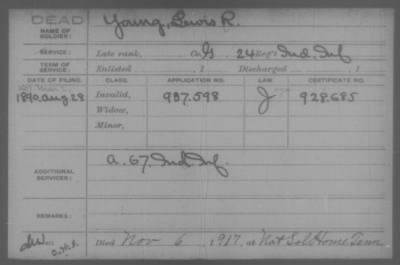 DEAD
NAME OF SOLDIER: Young, Lewis R.
SERVICE: Late rank, Co. G 24 Reg't Ind. Inf
TERM OF SERVICE: Enlisted , 1 Discharged , 1
DATE OF FILING. CLASS. APPLICATION NO. LAW. CERTIFICATE NO.
1890, Aug 28 Invalid, 937.598 J 928.685
Widow,
Minor,
ADDITIONAL SERVICES: A. 67. Ind. Inf.
REMARKS:
Died Nov 6, 1917, at Nat Sol Home Tenn